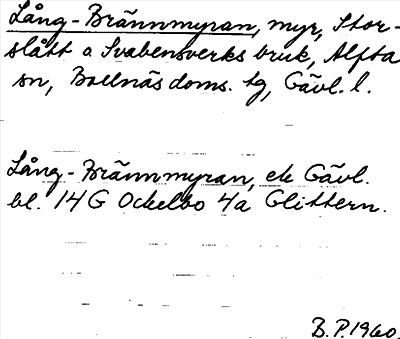 Lång-Brännmyran, myr, Stor-
slått a Svabensverks bruk, Alfta
sn, Bollnäs doms. tg, Gävl. l.
Lång-Brännmyran, ek Gävl.
bl. 14 G Ockelbo 4a Glittern.
B.P. 1960.